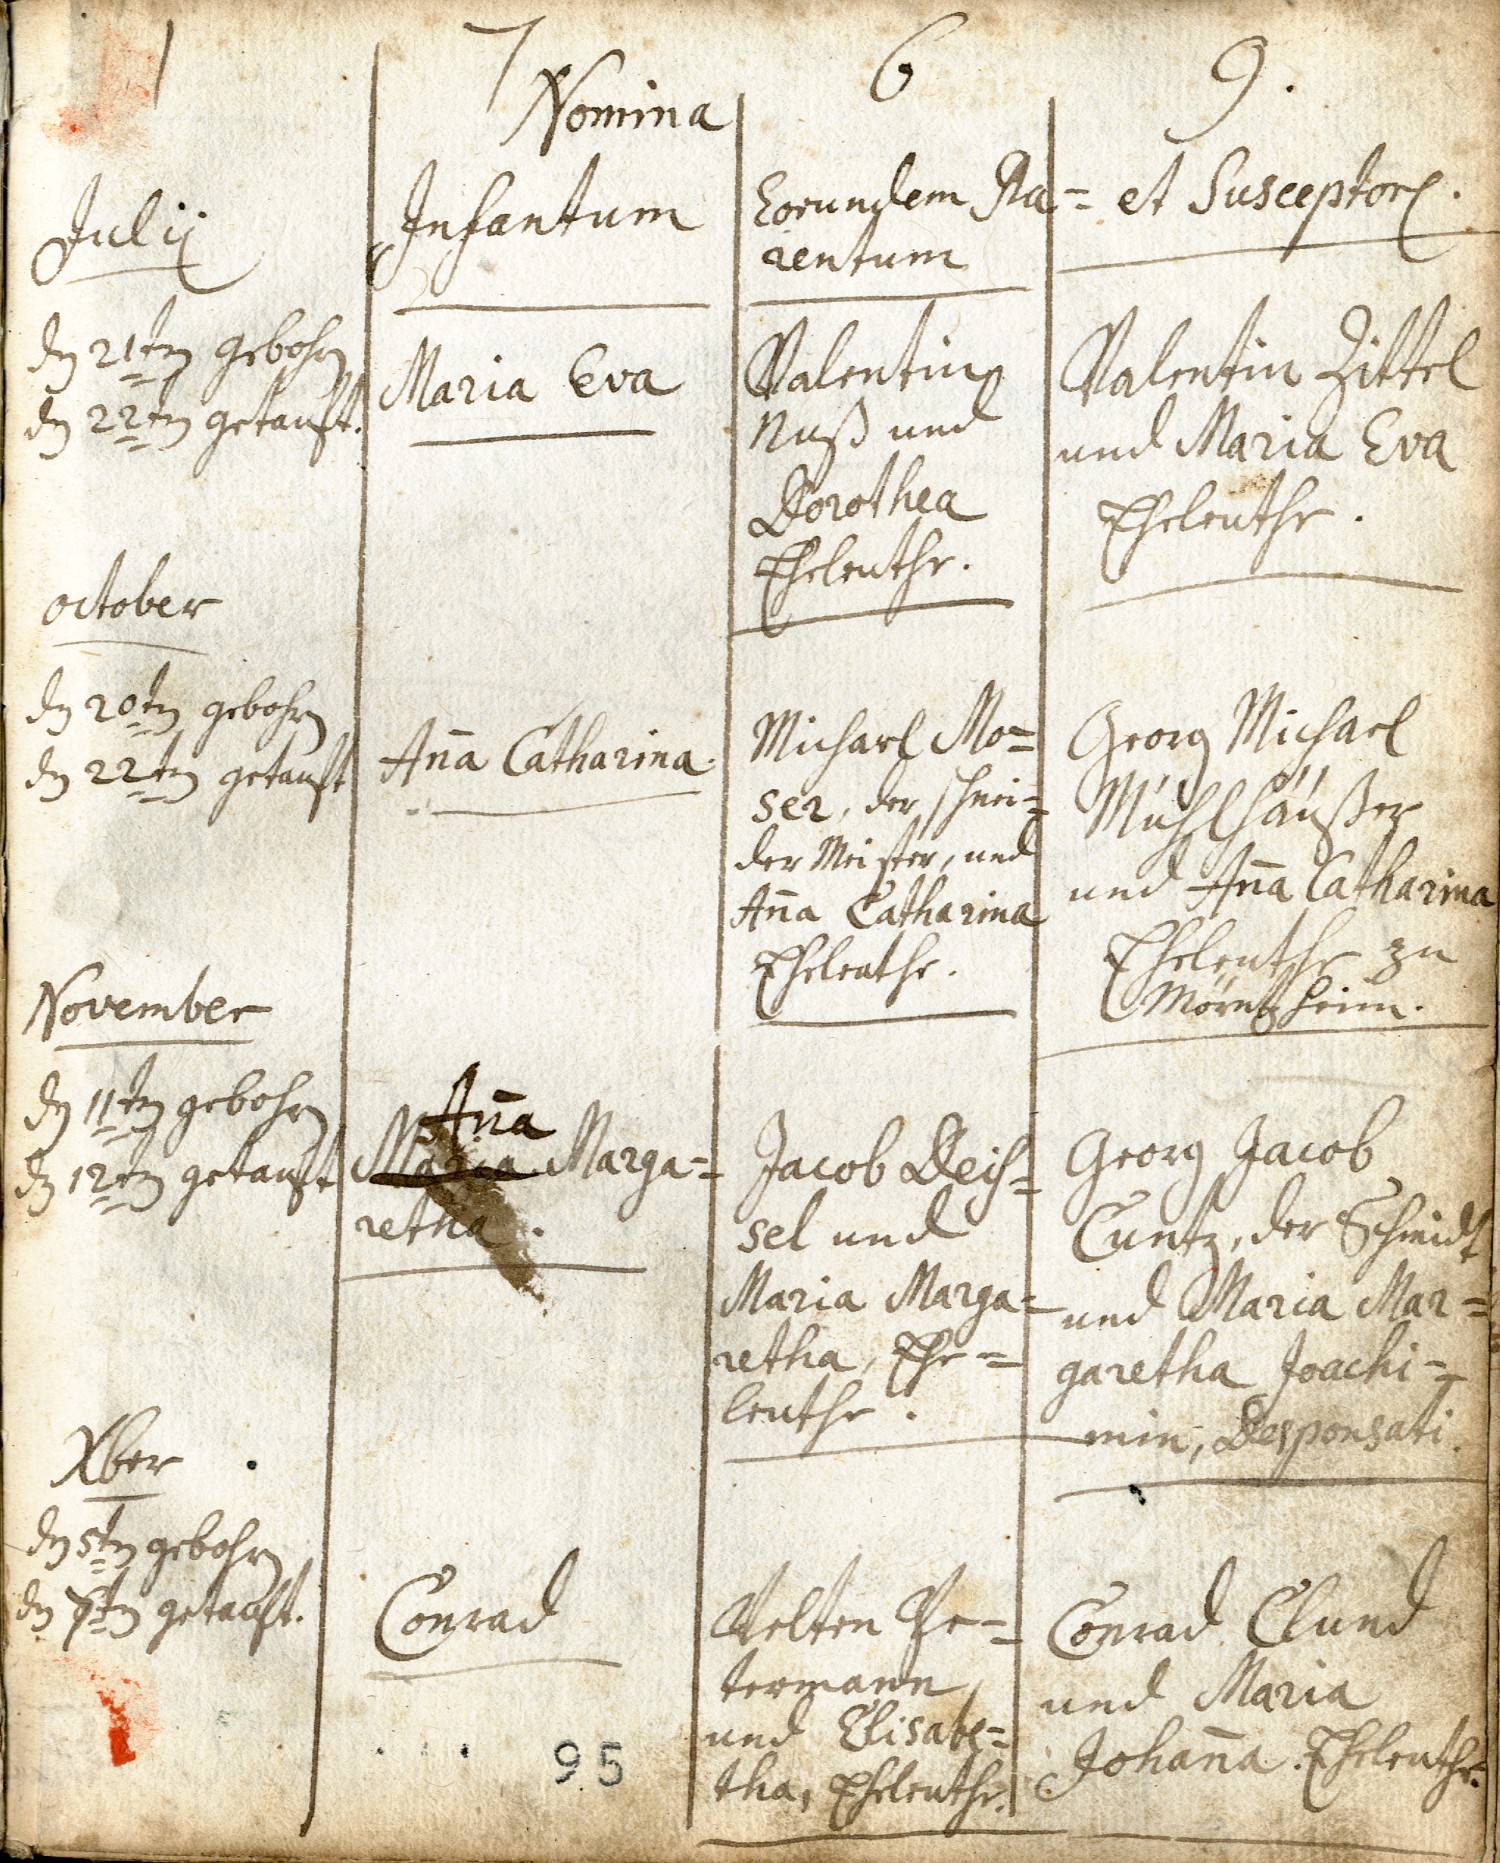 1 7 6 9.
Nomina
Julij
Infantum
Eorundem Pa=
rentum
et Susceptor.
dn 21tn gebohrn
dn 22tn getauft.
Maria Eva
Valentin
Nuß und
Dorothea
Eheleuthe.
Valentin Zittel
und Maria Eva
Eheleuthe.
october
dn 20tn gebohrn
dn 22tn getauft
Aña Catharina.
Michael Mo=
ser, der schnei=
der Meister, und
Aña Catharina
Eheleuthe.
Georg Michael
Mühlhäußer
und Aña Catharina
Eheleuthe zu
Mörntzheim.
November
dn 11tn gebohrn
dn 12tn getauft
Aña
Maria Marga=
retha.
Jacob Deis=
sel und
Maria Marga=
retha, Ehe=
leuthe.
Georg Jacob
Cuntz, der Schmidt
und Maria Mar=
garetha Joachi=
min, Desponsati.
Xber
dn 5tn gebohrn
dn 7tn getauft.
Conrad
Velten Pe=
termann,
und Elisabe=
tha, Eheleuthe.
Conrad Clund
und Maria
Johaña. Eheleuthe.
95